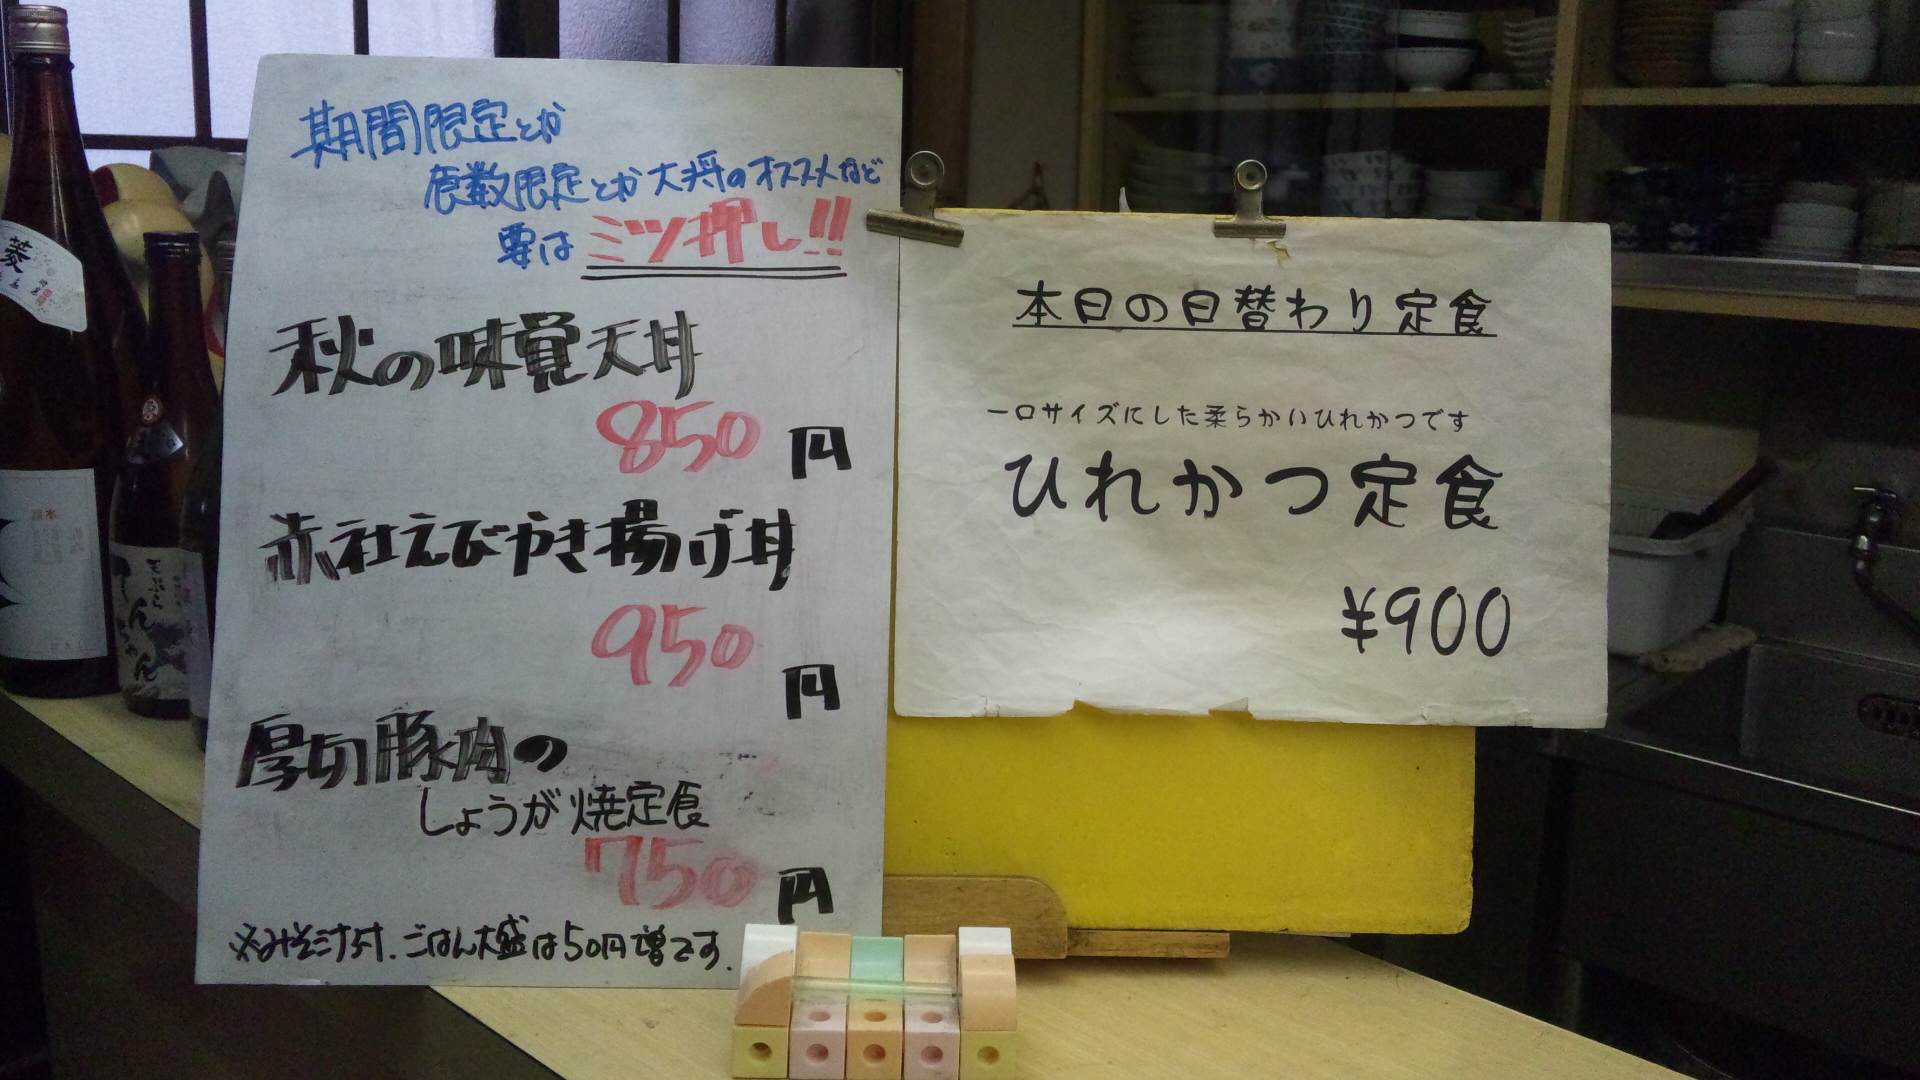 期間限定とか
食数限定とか大将のオススメなど
要はミツ押し!!
秋の味覚天丼
850円
赤社えびやき揚げ丼
950円
厚切豚肉の
しょうが焼定食
750円
※みそ汁付.ごはん大盛は50円増です.
本日の日替わり定食
一口サイズにした柔らかいひれかつです
ひれかつ定食
¥900
菱
天ぷら